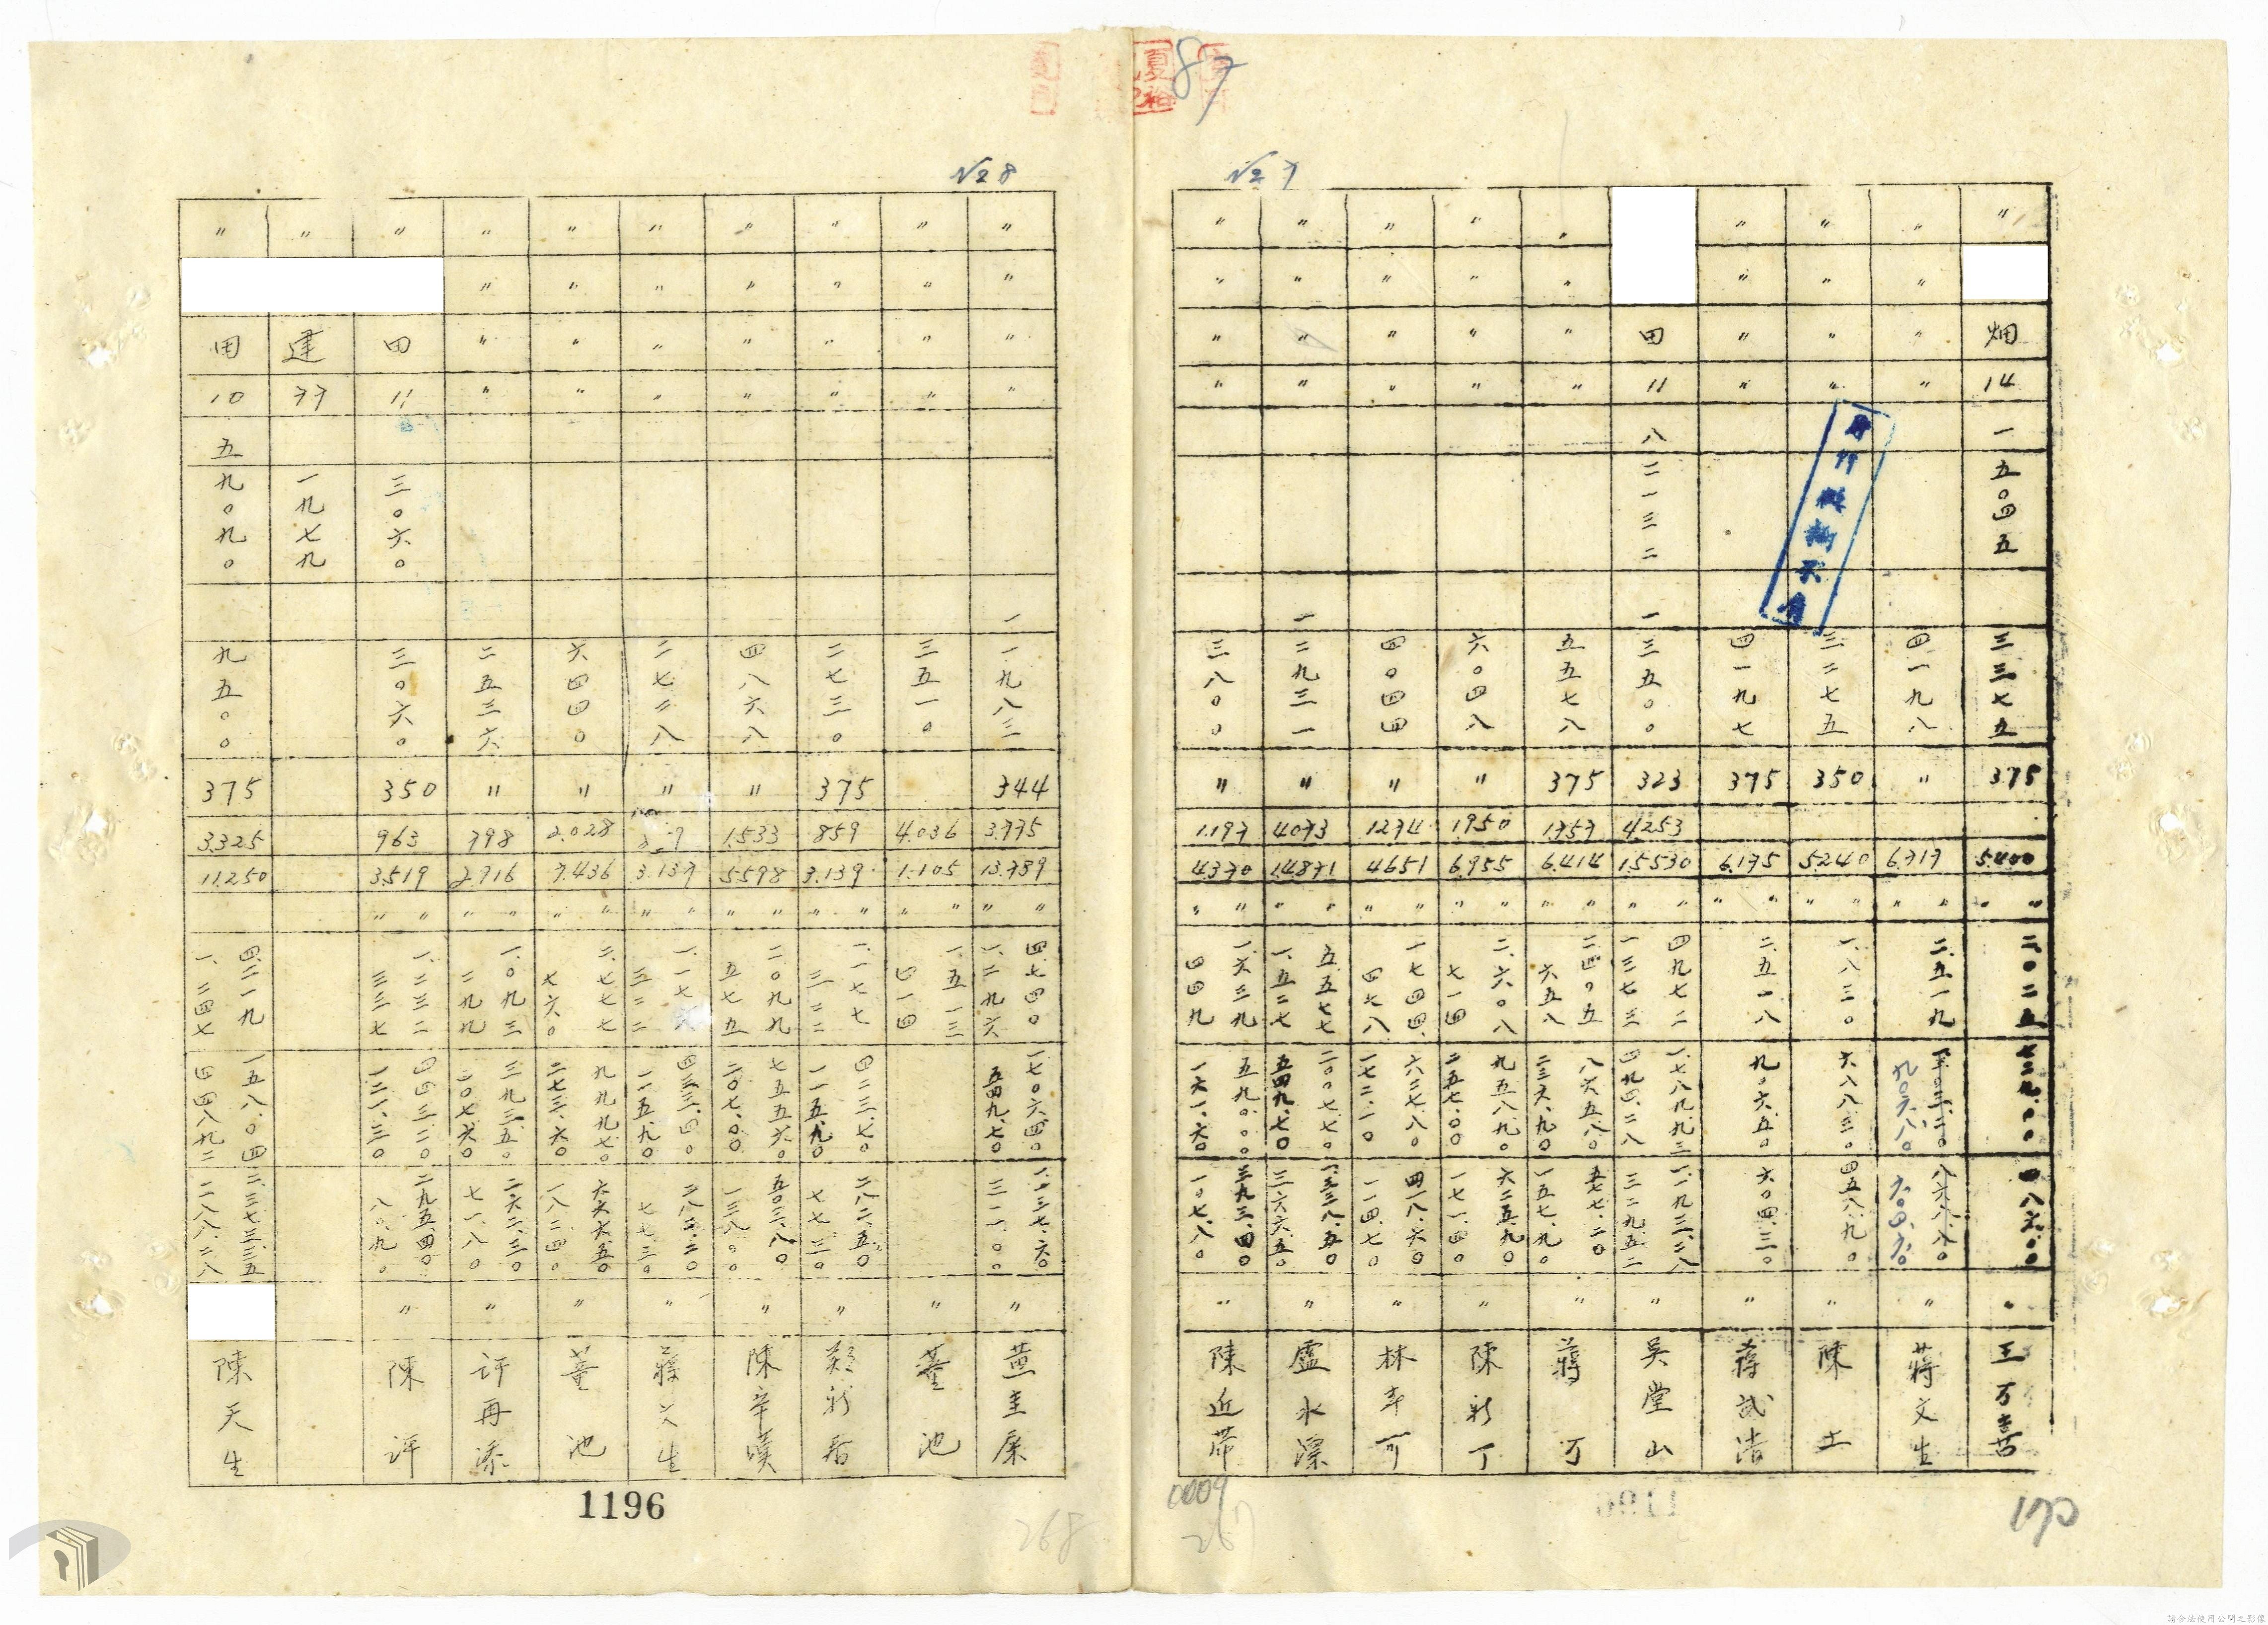 87
№ 7
〃 畑 14 一 五〇四五 三三七五 375 5.400 〃 〃 二、〇二五 七二九.〇〇 四八六.〇〇 〃 王万吉
〃 〃 〃 〃 四一九八 〃 6.717 〃 〃 二、五一九 九〇六.八〇 八六八.八〇 六〇四.六〇 〃 蔣文生
〃 〃 〃 〃 三二七五 350 5.240 〃 〃 一、八三〇 六八八.三〇 四五八.九〇 〃 陳土
〃 〃 〃 〃 四一九七 375 6.175 〃 〃 二、五一八 九〇六.五〇 六〇四.三〇 〃 蔣武
田 11 八 二一三二 一 三五〇〇 323 4.253 15.530 〃 〃 四九七二 一三七三 一、七八九.九三 四九四.二八 一、一九三.二八 三二九.五二 〃 吳堂山
〃 〃 〃 〃 五五七八 375 1.757 6.414 〃 〃 二四〇五 六五八 八六五.八〇 二三六.九〇 五七七.二〇 一五七.九〇 〃 蔣可
〃 〃 〃 〃 六〇四八 〃 1.950 6.955 〃 〃 二、六〇八 七一四 九五八.九〇 二五七.〇〇 六二五.九〇 一七一.四〇 〃 陳新丁
〃 〃 〃 〃 四〇四四 〃 1.274 4.651 〃 〃 一七四四 四七八 六二七.八〇 一七二.一〇 四一八.六〇 一一四.七〇 〃 林幸可
〃 〃 〃 〃 一 二九三一 〃 4.073 14.871 〃 〃 五、五七七 一、五二七 二〇〇七.七〇 五四九.七〇 一、三三八.五〇 三六六.五〇 〃 盧水深
〃 〃 〃 〃 三八〇〇 〃 1.197 4.370 〃 〃 一、六三九 四四九 五九〇.〇〇 一六一.六〇 三九三.四〇 一〇七.八〇 〃 陳近帶
0009
267
170
№ 8
〃 〃 〃 〃 一 一九八三 344 3.775 13.789 〃 〃 四、七四〇 一、二九六 一七〇六.四〇 五四九.七〇 一、一三七.六〇 三一一.〇〇 〃 黃圭屎
〃 〃 〃 〃 三五一〇 4.036 1.105 〃 〃 一、五一三 四一四 〃 董池
〃 〃 〃 〃 二七三〇 375 859 3.139 〃 〃 一、一七七 三二二 四二三.七〇 一一五.九〇 二八二.五〇 七七.三〇 〃 鄭新居
〃 〃 〃 〃 四八六八 〃 1.533 5.598 〃 〃 二、〇九九 五七五 七五五.六〇 二〇七.〇〇 五〇三.八〇 一三八.〇〇 〃 陳幸
〃 〃 〃 〃 二七二八 〃 3.137 〃 〃 一、一七六 三二二 四二三.四〇 一一五.九〇 二八二.二〇 七七.三〇 〃 蔣文生
〃 〃 〃 〃 六四四〇 〃 2.028 7.436 〃 〃 二、七七七 七六〇 九九九.七〇 二七三.六〇 六六六.五〇 一八二.四〇 〃 董池
〃 〃 〃 〃 二五三六 〃 798 2.716 〃 〃 一、〇九三 二九九 三九三.五〇 一〇七.六〇 二六二.三〇 七一.八〇 〃 許再添
〃 田 11 三〇六〇 三〇六〇 350 963 3.519 〃 〃 一、二三二 三三七 四四三.二〇 一二一.三〇 二九五.四〇 八〇.九〇 〃 陳評
〃 建 77 一九七九
〃 田 10 五 九〇九〇 九五〇〇 375 3.325 11.250 四、二一九 一、二四七 一五八.〇四 四四八.九二 二、三七三.三五 二八八.二八 陳天生
1196
268
請合法使用公開之影像